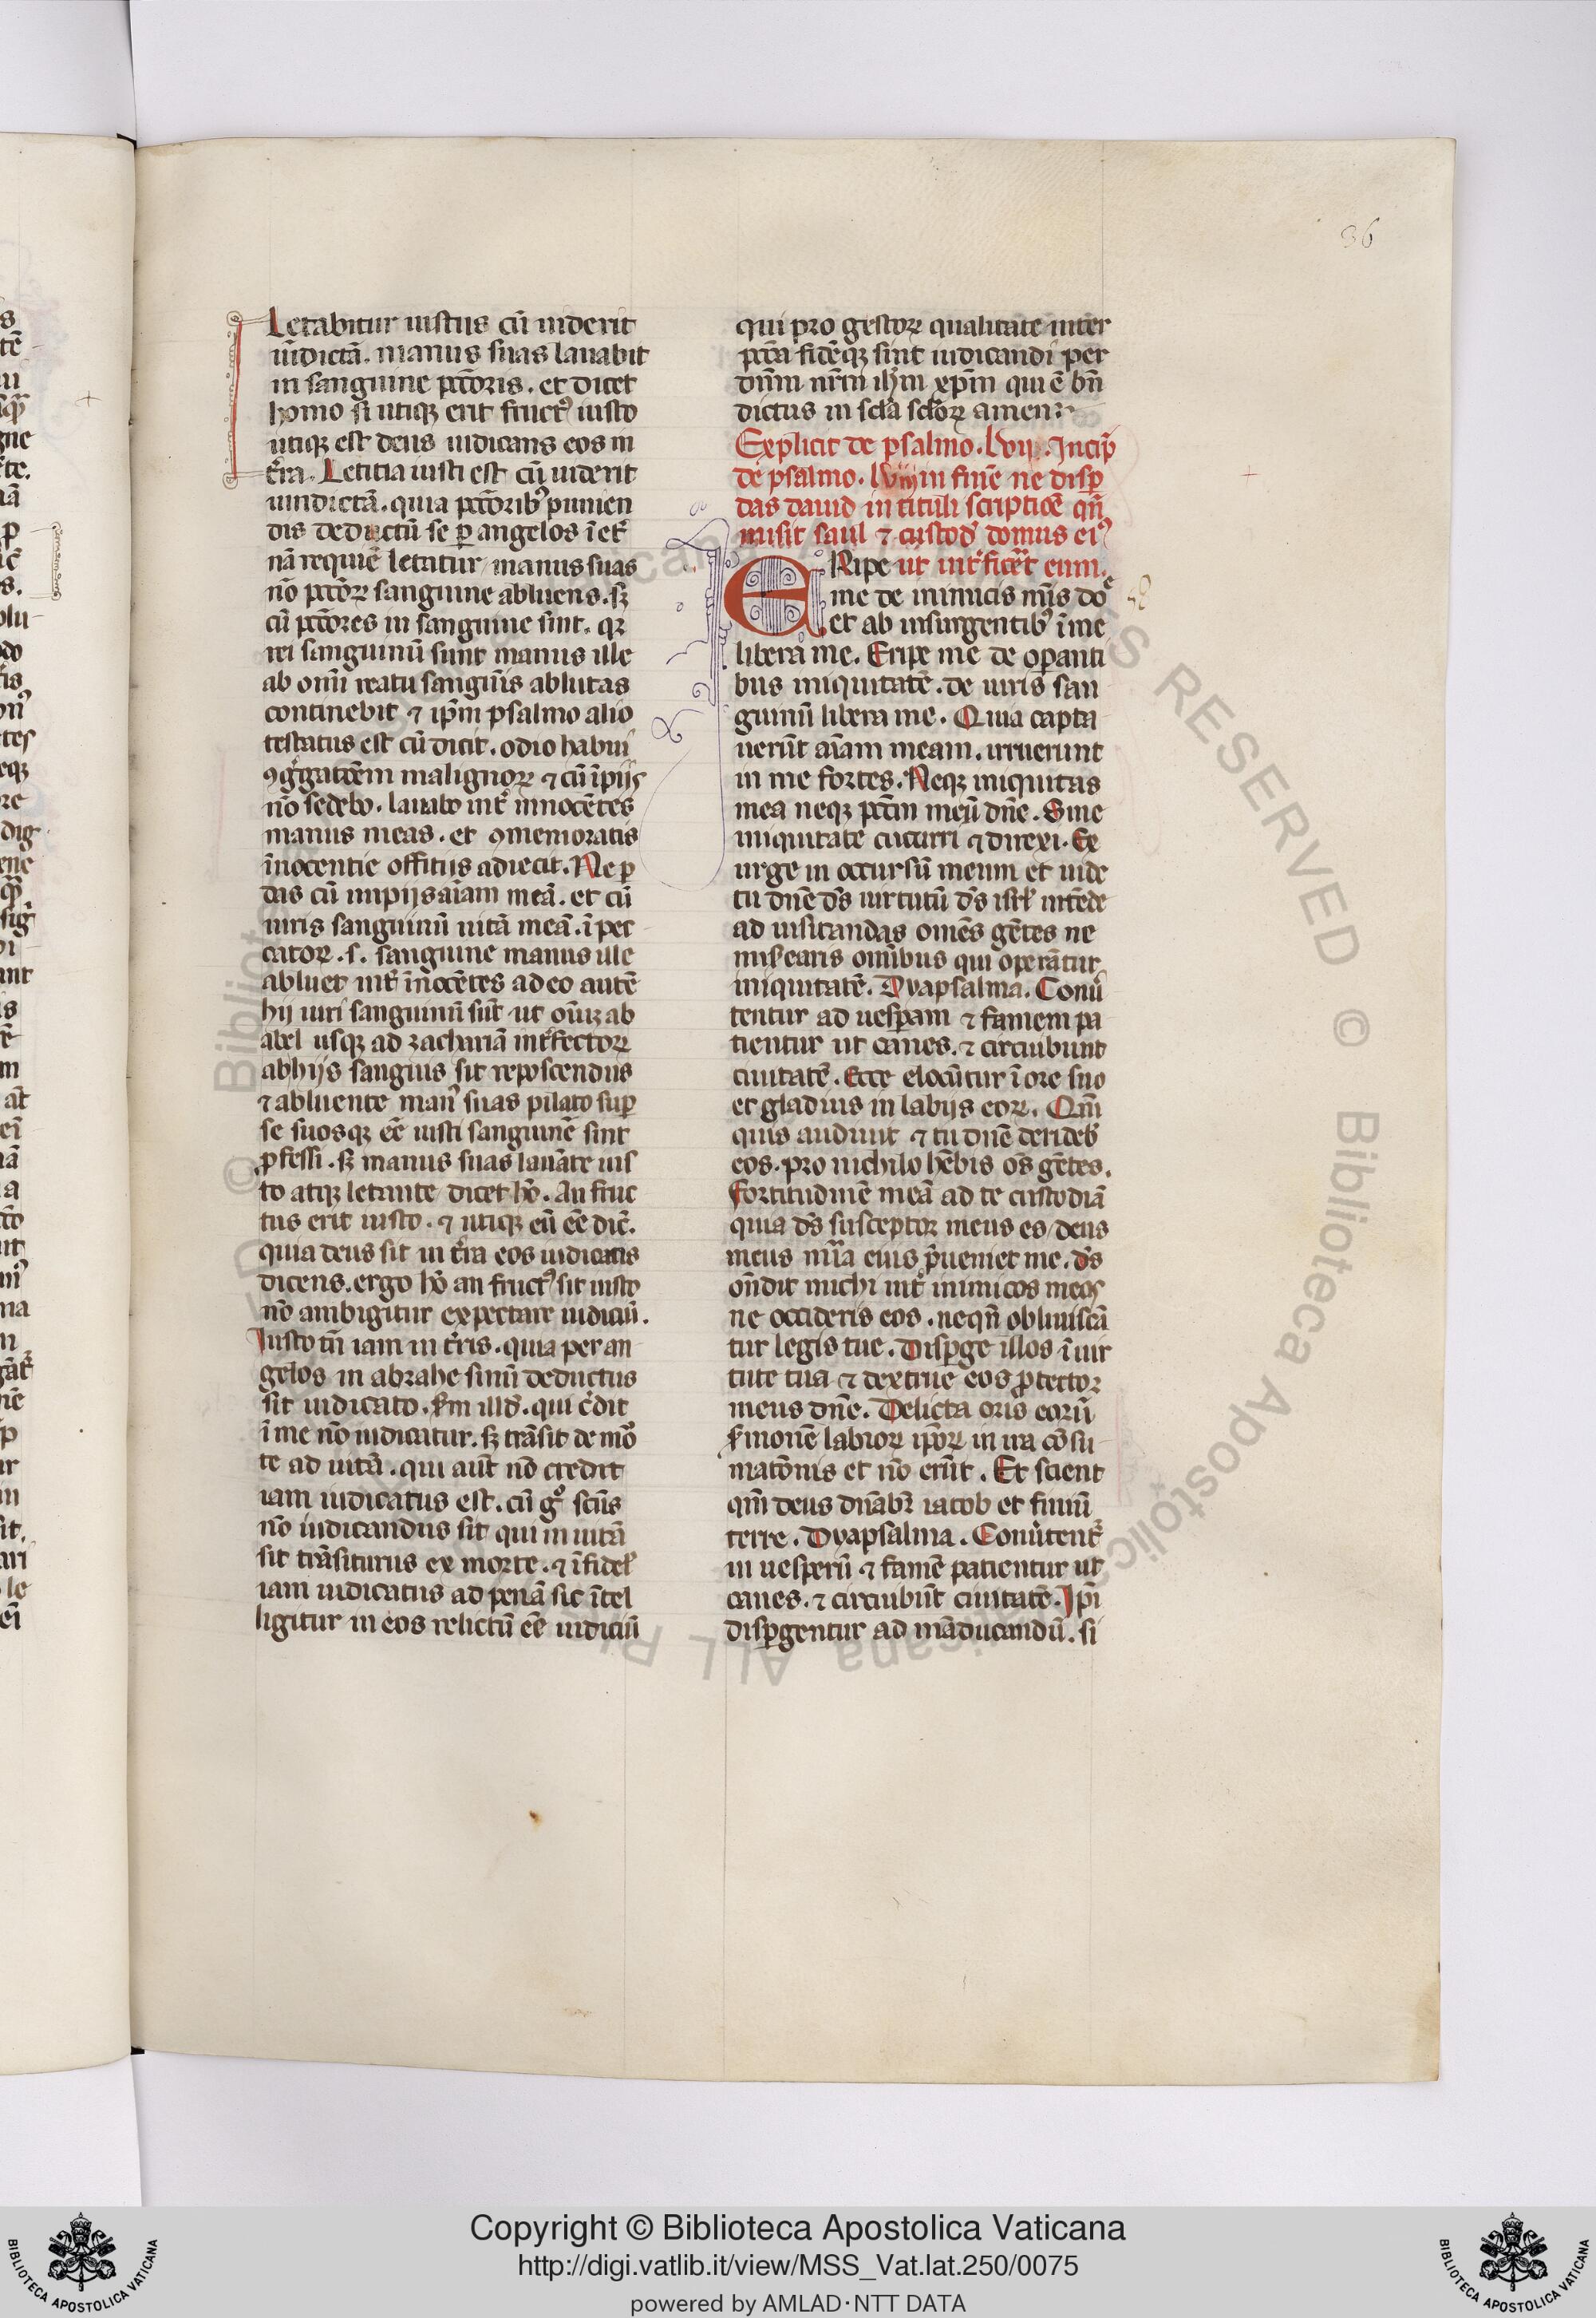 36
Letabitur iustus cū uiderit
uīdictā. manus suas lauabit
in sanguine pcc̄oris. et dicet
homo si utiqꝫ erit fructꝰ iusto
utiqꝫ est deus iudicans eos in
t̄ra. Letitia iusti est cū uiderit
uindictā. quia pcc̄oribꝰ punien
dis deductū se ꝑ angelos ī et̄
nā requiē letatur manus suas
nō pcc̄oꝝ sanguine abluens. sꝫ
cū pcc̄ores in sanguine sint. qꝛ
rei sanguinū sunt manus ille
ab omī reatu sangūis ablutas
continebit ⁊ ip̄m psalmo alio
testatus est cū dicit. odio habui
ꝯḡgatōem malignoꝝ ⁊ cū īpijs
nō sedebo. lauabo int̄ innocētes
manus meas. et ꝯmemoratis
īnocentie offitiis adiecit. Ne ꝑ
das cū impijs aīam meā. et cū
uiris sanguinū uitā meā. ī pec
catoꝝ .s. sanguine manus ille
abluet int̄ īnocētes adeo autē
hij uiri sanguinū sūt ut
abel usqꝫ ad zachariā int̄fectoꝝ
abhijs sangius sit reposcendus
⁊ abluente manꝰ suas pilato suꝑ
se suosqꝫ eē iusti sanguinē sint
ꝓfessi. sꝫ manus suas lauāte ius
to atqꝫ letante dicet hō. An fruc
tus erit iusto. ⁊ utiqꝫ eū eē dic̄.
quia deus sit in t̄ra eos iudicans
dicens. ergo hō an fructꝰ sit iusto
nō ambigitur expectare iudiciū.
Iusto tn̄ iam in t̄ris. quia per an
gelos in abrahe sinū deductus
sit iudicato. s̄m illd̄. qui c̄dit
ī me nō iudicatur. sꝫ trāsit de mo
te ad uitā. qui aūt nō credit
iam iudicatus est. cū gͦ scūs
nō iudicandus sit qui in uitā
sit trāsiturus ex morte. ⁊ īfidel̄
iam iudicatus ad penā sic ītel
ligitur in eos relictū eē iudiciū
qui pro gestoꝝ qualitate inter
pcc̄a fidēqꝫ sint iudicandi per
dn̄m nr̄m ih̄m xp̄m qui ē bn̄
dictus in scl̄a scl̄oꝝ amen
Explicit de psalmo. lvij. Incip̄
de psalmo. lviij in finē ne disꝑ
das dauid in tituli scriptiōē qn̄
misit saul ⁊ custod̄ domus eiꝰ
ERipe ut int̄fic̄et eum.
me de inimicis mīs do
et ab insurgentibꝰ ī me
libera me. Eripe me de oꝑanti
bus iniquitatē. de uiris san
guinū libera me. Quia capta
uerūt aīam meam. irruerunt
in me fortes. Neqꝫ iniquitas
mea neqꝫ pcc̄m meū dn̄e. Sine
iniquitate cucurri ⁊ direxi. Ex
urge in occursū meum et uide
tu dn̄e ds̄ uirtutū ds̄ isrl̄ intēde
ad uisitandas omēs gētes ne
mis̄earis omībus qui operātur
iniquitatē. Dyapsalma. Conu̾
tentur ad uesꝑam ⁊ famem pa
tientur ut canes. ⁊ circuibunt
ciuitatē. Ecce elocūtur ī ore suo
et gladius in labijs eoꝝ. Qm̄
quis audiuit ⁊ tu dn̄e derideb̄
eos. pro nichilo hēbis os̄ gētes.
fortitudinē meā ad te custodiā
quia ds̄ susceptor meus es deus
meus mīa eius p̄ueniet me. ds̄
on̄dit michi int̄ inimicos meos
ne occideris eos. neqn̄ obliuiscā
tur legis tue. Disꝑge illos ī uir
tute tua ⁊ dextrue eos ꝓtector
meus dn̄e. Delicta oris eorū
s̄monē labioꝝ ip̄oꝝ in ira cōsu
matōnis et nō erūt. Et scient
qm̄ deus dn̄abꝛ iacob et finiū
terre. Dyapsalma. Conu̾tent̄
in uesperū ⁊ famē patientur ut
canes. ⁊ circuibūt ciuitatē. Ip̄i
disꝑgentur ad māducandū. si
© Biblioteca Apostolica Vaticana ALL RIGHTS RESERVED
Copyright © Biblioteca Apostolica Vaticana
http://digi.vatlib.it/view/MSS_Vat.lat.250/0075
powered by AMLAD·NTT DATA
BIBLIOTECA APOSTOLICA VATICANA
BIBLIOTECA APOSTOLICA VATICANA